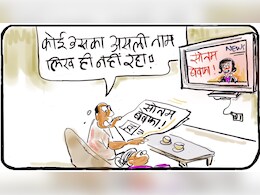 कोई उसका असली नाम
लिख ही नहीं रहा!
NEWS
सोनम
बेवफा!
सोनम
बेवफा!